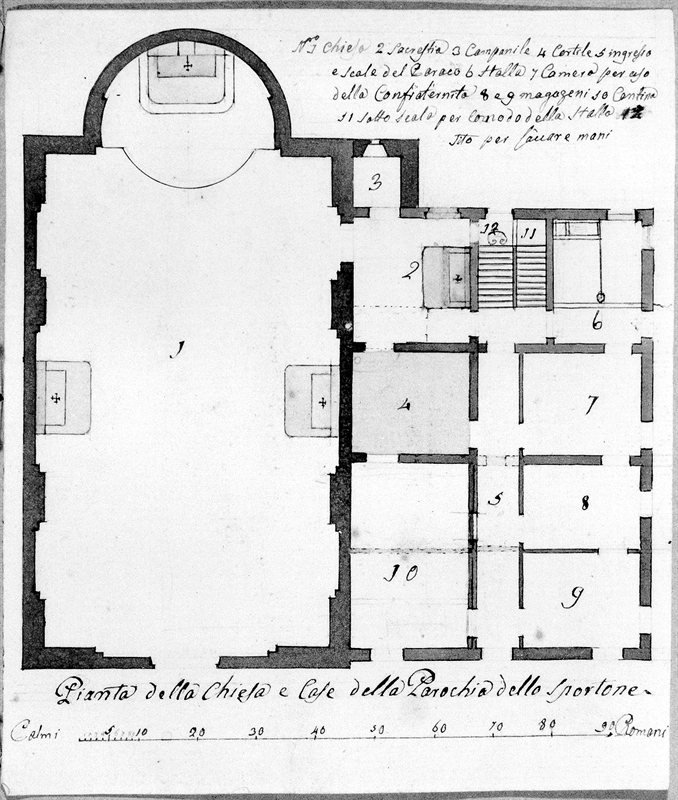 N.ro 1 Chiesa 2 Sacrestia 3 Campanile 4 Cortile 5 ingresso
e scale del Paraco 6 Stalla 7 Camera per uso
della Confraternita 8 e 9 magazeni 10 Cantina
11 Sotto scala per comodo della Stalla 12
Sito per Laccare mani
3
12
11
2
6
1
4
7
5
8
10
9
Pianta della Chiesa e Case della Parochia dello Sportone
Palmi 5 10 20 30 40 50 60 70 80 90 Romani